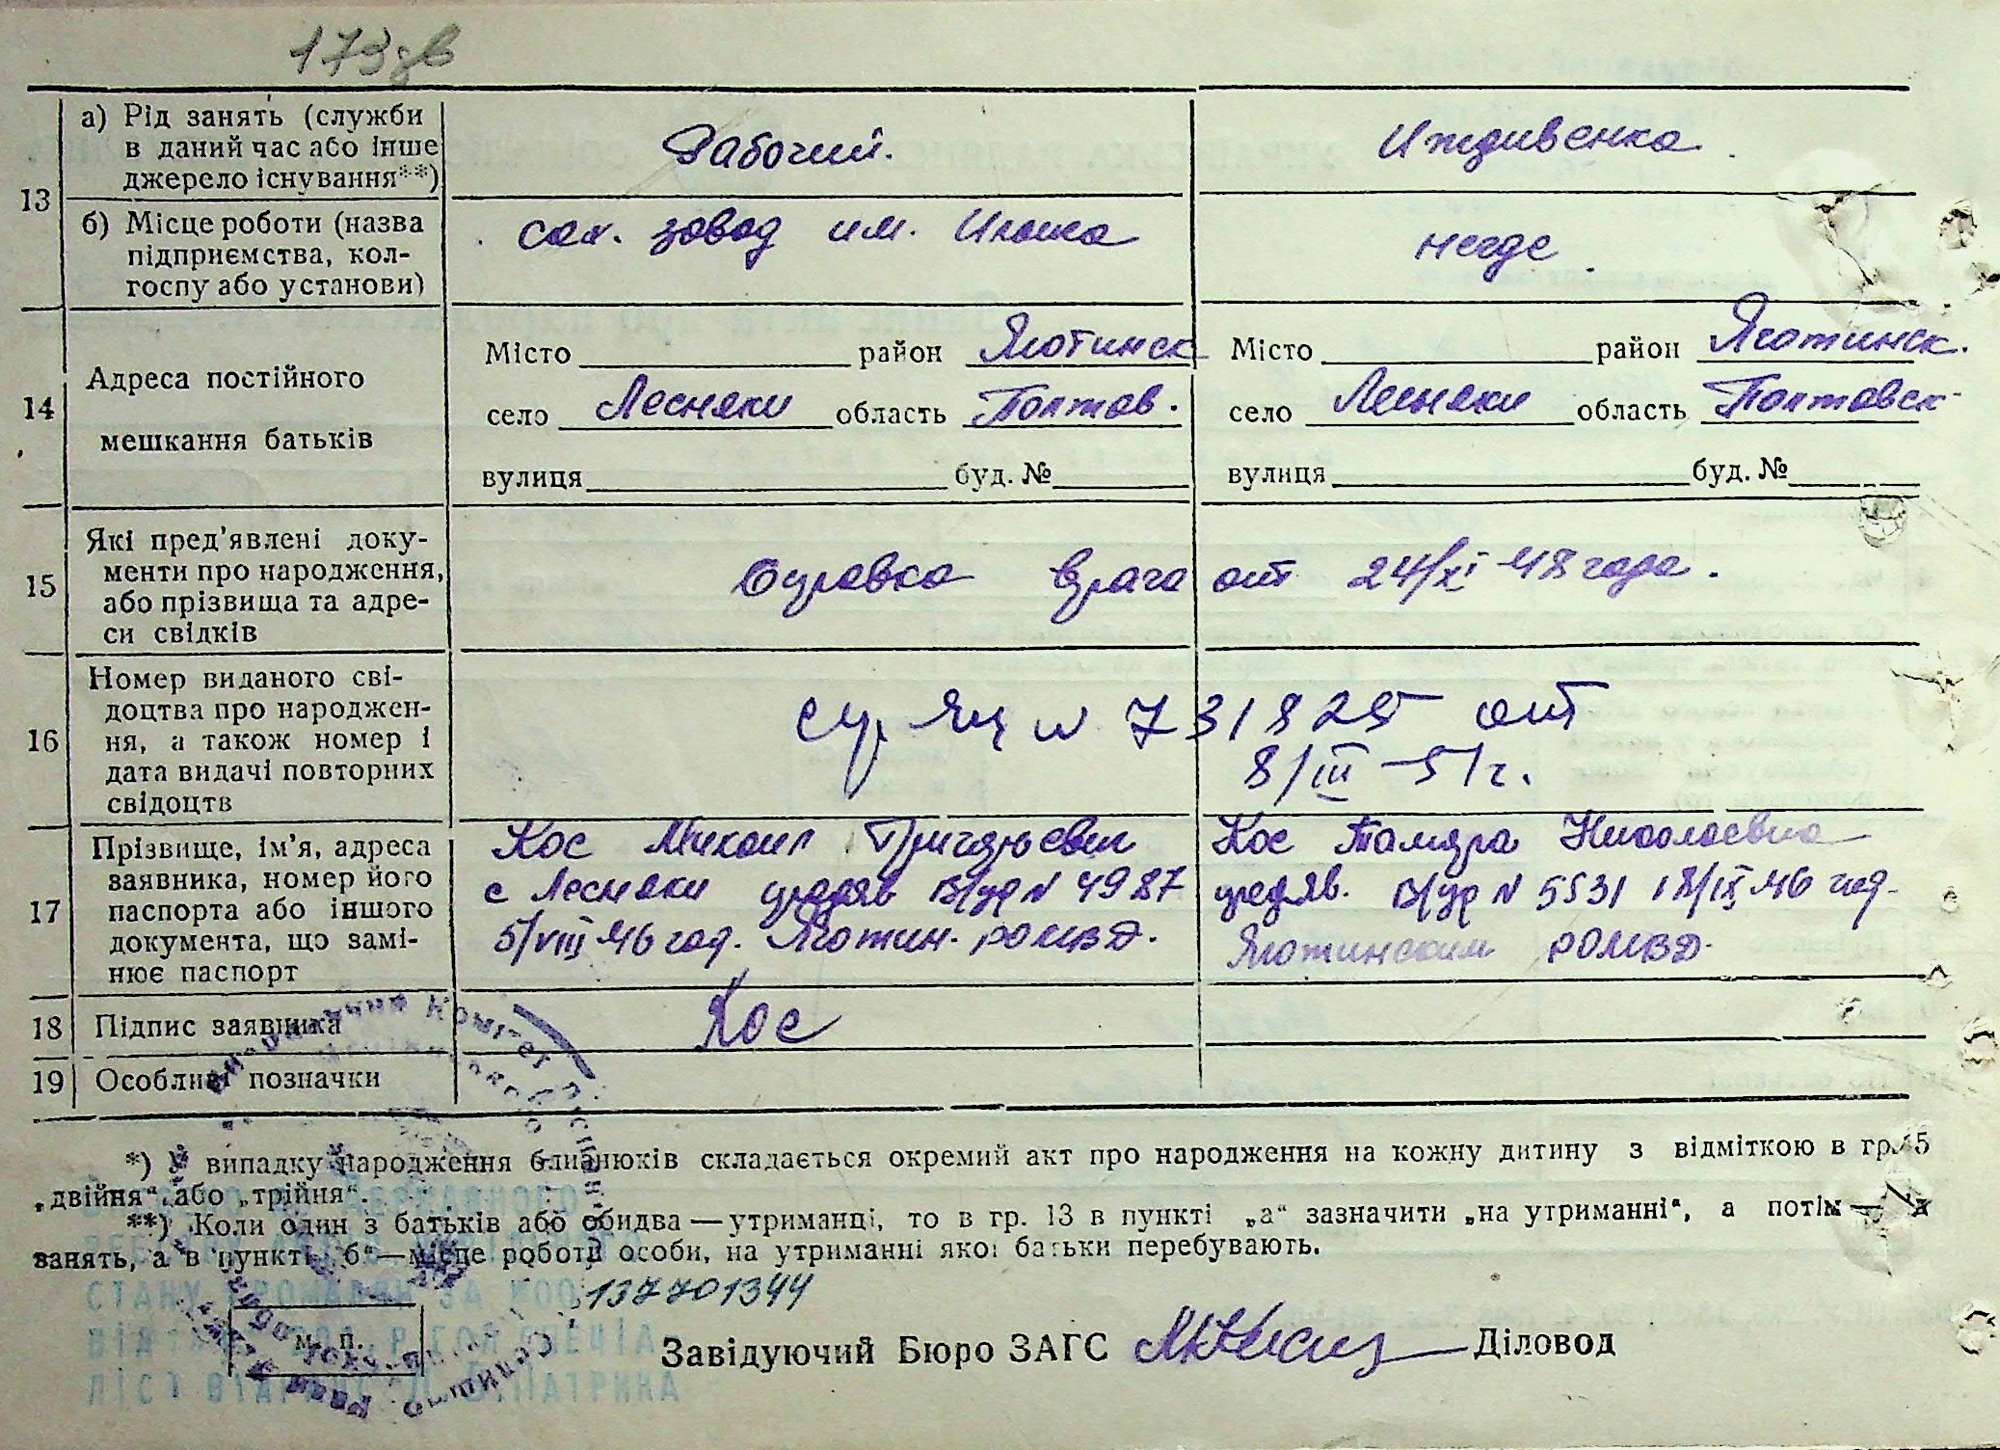 173зв
13
а) Рід занять (служби
в даний час або інше
джерело існування**)
Рабочий.
Иждивенка.
б) Місце роботи (назва
підприємства, кол-
госпу або установи)
сах. завод им. Ильича
негде.
14
Адреса постійного
мешкання батьків
Місто район Яготинск
село Лесняки область Полтав.
вулиця буд. №
Місто район Яготинск.
село Лесняки область Полтавск
вулиця буд. №
15
Які пред'явлені доку-
менти про народження,
або прізвища та адре-
си свідків
Справка врача от 24/XI 48 года.
16
Номер виданого сві-
доцтва про народжен-
ня, а також номер і
дата видачі повторних
свідоцтв
N 731825 от
8/III-51г.
17
Прізвище, ім'я, адреса
заявника, номер його
паспорта або іншого
документа, що замі-
нює паспорт
Кос Михаил Григорьевич
с Лесняки N 4987
5/VIII 46 год. Яготин. РОМВД.
Кос Тамара Николаевна
N 5531 18/IX 46 год.
Яготинским РОМВД.
18
Підпис заявника
Кос
19
Особливі позначки
*) У випадку народження близнюків складається окремий акт про народження на кожну дитину з відміткою в гр. 5
„двійня“ або „трійня“.
**) Коли один з батьків або обидва — утриманці, то в гр. 13 в пункті „а“ зазначити „на утриманні“, а потім —
занять, а в пункті „б“ — місце роботи особи, на утриманні якої батьки перебувають.
137701344
м. п.
Завідуючий Бюро ЗАГС Діловод